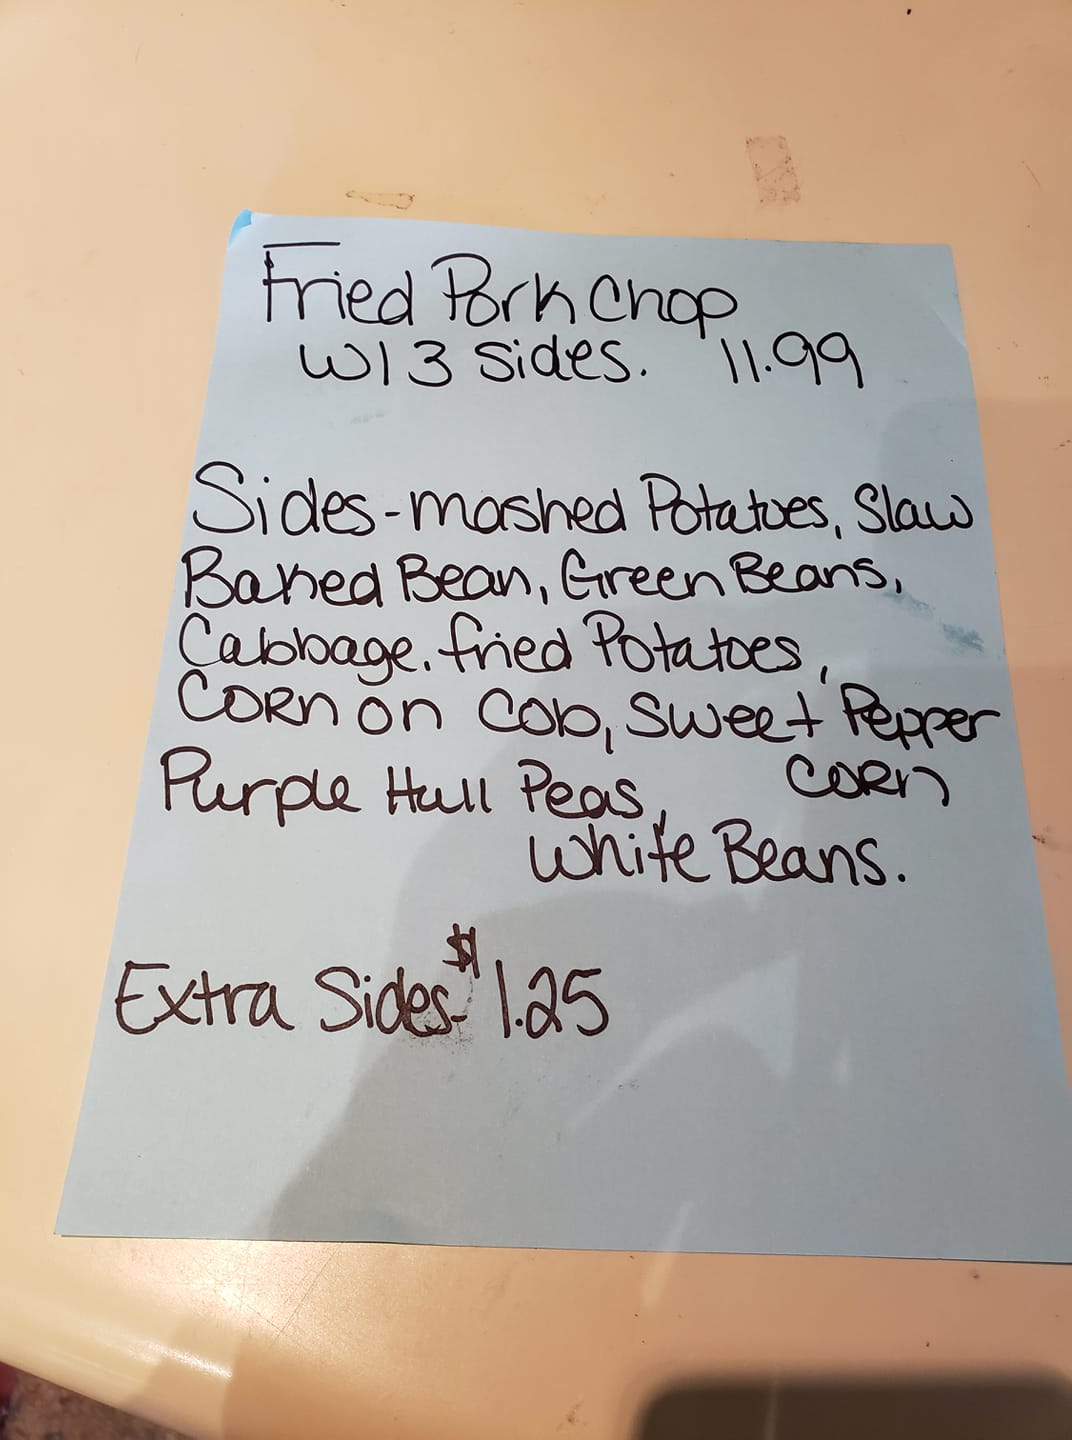 Fried Pork Chop
W/ 3 Sides. 11.99
Sides - mashed Potatoes, Slaw
Baked Bean, Green Beans,
Cabbage. fried Potatoes,
Corn on Cob, Sweet Pepper
Corn
Purple Hull Peas,
White Beans.
Extra Sides - $1.25